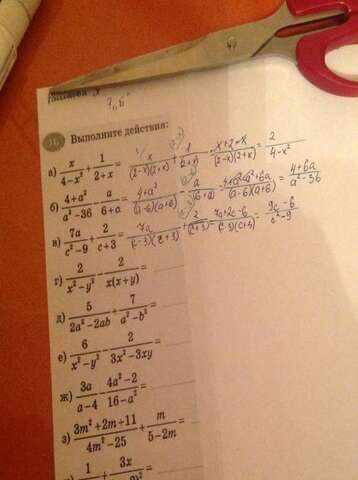 7 „б"
16 Выполните действия:
а) x/(4-x²) + 1/(2+x) = x/((2-x)(2+x)) + 1/(2+x) = (x+2-x)/((2-x)(2+x)) = 2/(4-x²)
б) (4+a²)/(a²-36) - a/(6+a) = (4+a²)/((a-6)(a+6)) - a/(6+a) = (4+a²-a²+6a)/((a-6)(a+6)) = (4+6a)/(a²-36)
в) 7a/(c²-9) + 2/(c+3) = 7a/((c-3)(c+3)) + 2/(c+3) = (7a+2c-6)/((c-3)(c+3)) = (9c-6)/(c²-9)
г) 2/(x²-y²) - 2/(x(x+y)) =
д) 5/(2a²-2ab) + 7/(a²-b²) =
е) 6/(x²-y²) - 2/(3x²-3xy) =
ж) 3a/(a-4) - (4a²-2)/(16-a²) =
з) (3m²+2m+11)/(4m²-25) + m/(5-2m) =